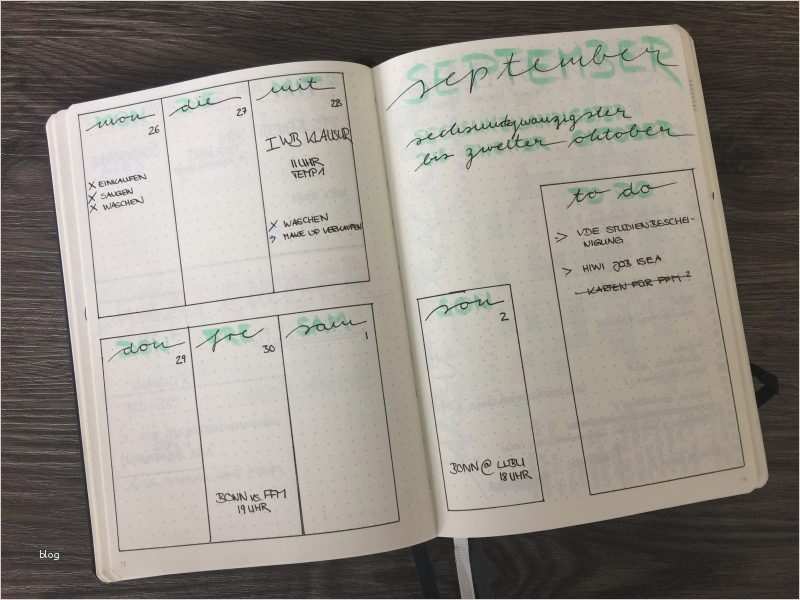 mon
26
X EINKAUFEN
X SAUGEN
X WASCHEN
die
27
mit
28
IWB KLAUSUR
11 UHR
TEMP 1
X WASCHEN
> MAKE UP VERKAUFEN
don
29
fre
30
BONN vs. FFM
19 UHR
sam
1
SEPTEMBER
september
sechsundzwanzigster
bis zweiter oktober
son
2
BONN @ LUBU
18 UHR
to do
> VDE STUDIENBESCHEI-
NIGUNG
> HIWI JOB ISEA
KARTEN FÜR FFM ?
blog